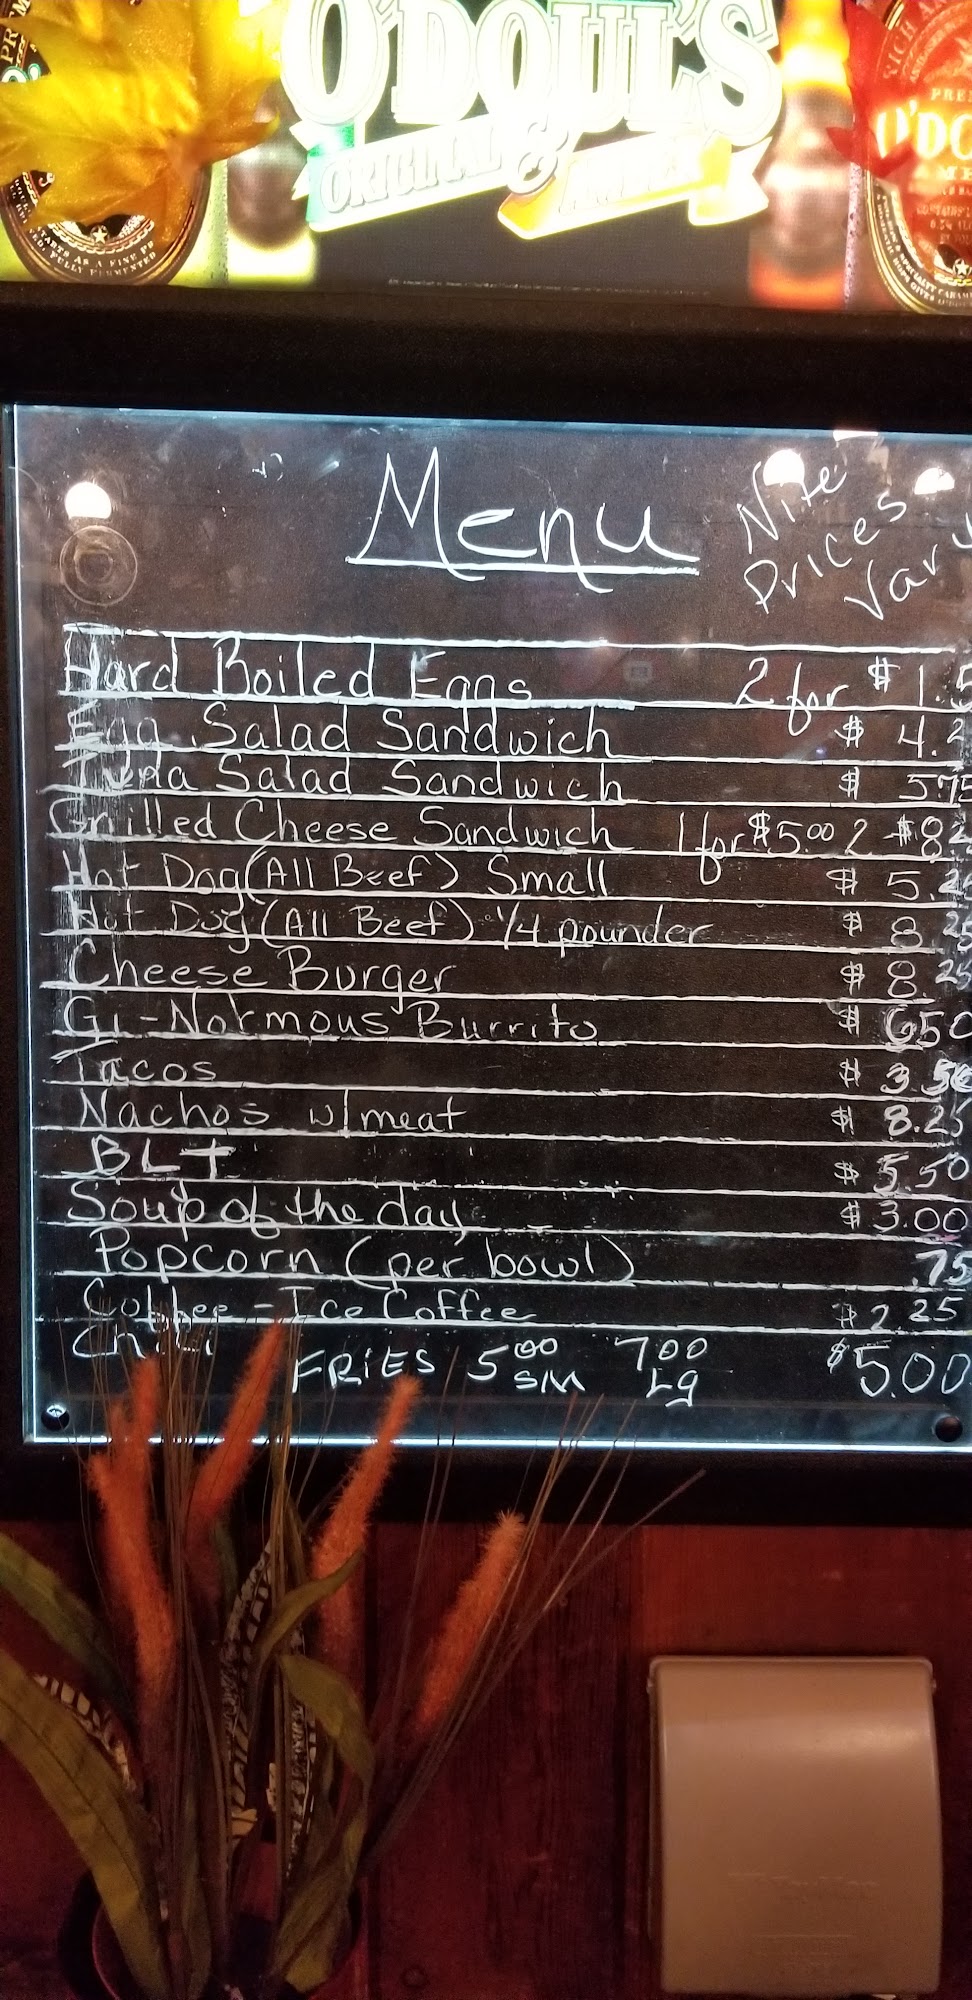 O'DOUL'S
ORIGINAL & AMBER
PREM
O'DO
AMBE
STARTS AS A FINE
FULLY FERMENTED
Menu
Nite
Prices
Var
Hard Boiled Eggs 2 for $1.5
Egg Salad Sandwich $4.2
Tuna Salad Sandwich $5.75
Grilled Cheese Sandwich 1 for $5.00 2 $8.2
Hot Dog (All Beef) Small $5.25
Hot Dog (All Beef) 1/4 pounder $8.25
Cheese Burger $8.25
Gi-Normous Burrito $6.50
Tacos $3.50
Nachos w/meat $8.25
BLT $5.50
Soup of the day $3.00
Popcorn (per bowl) .75
Coffee - Ice Coffee $2.25
Chili $5.00
FRIES 5.00 SM 7.00 Lg